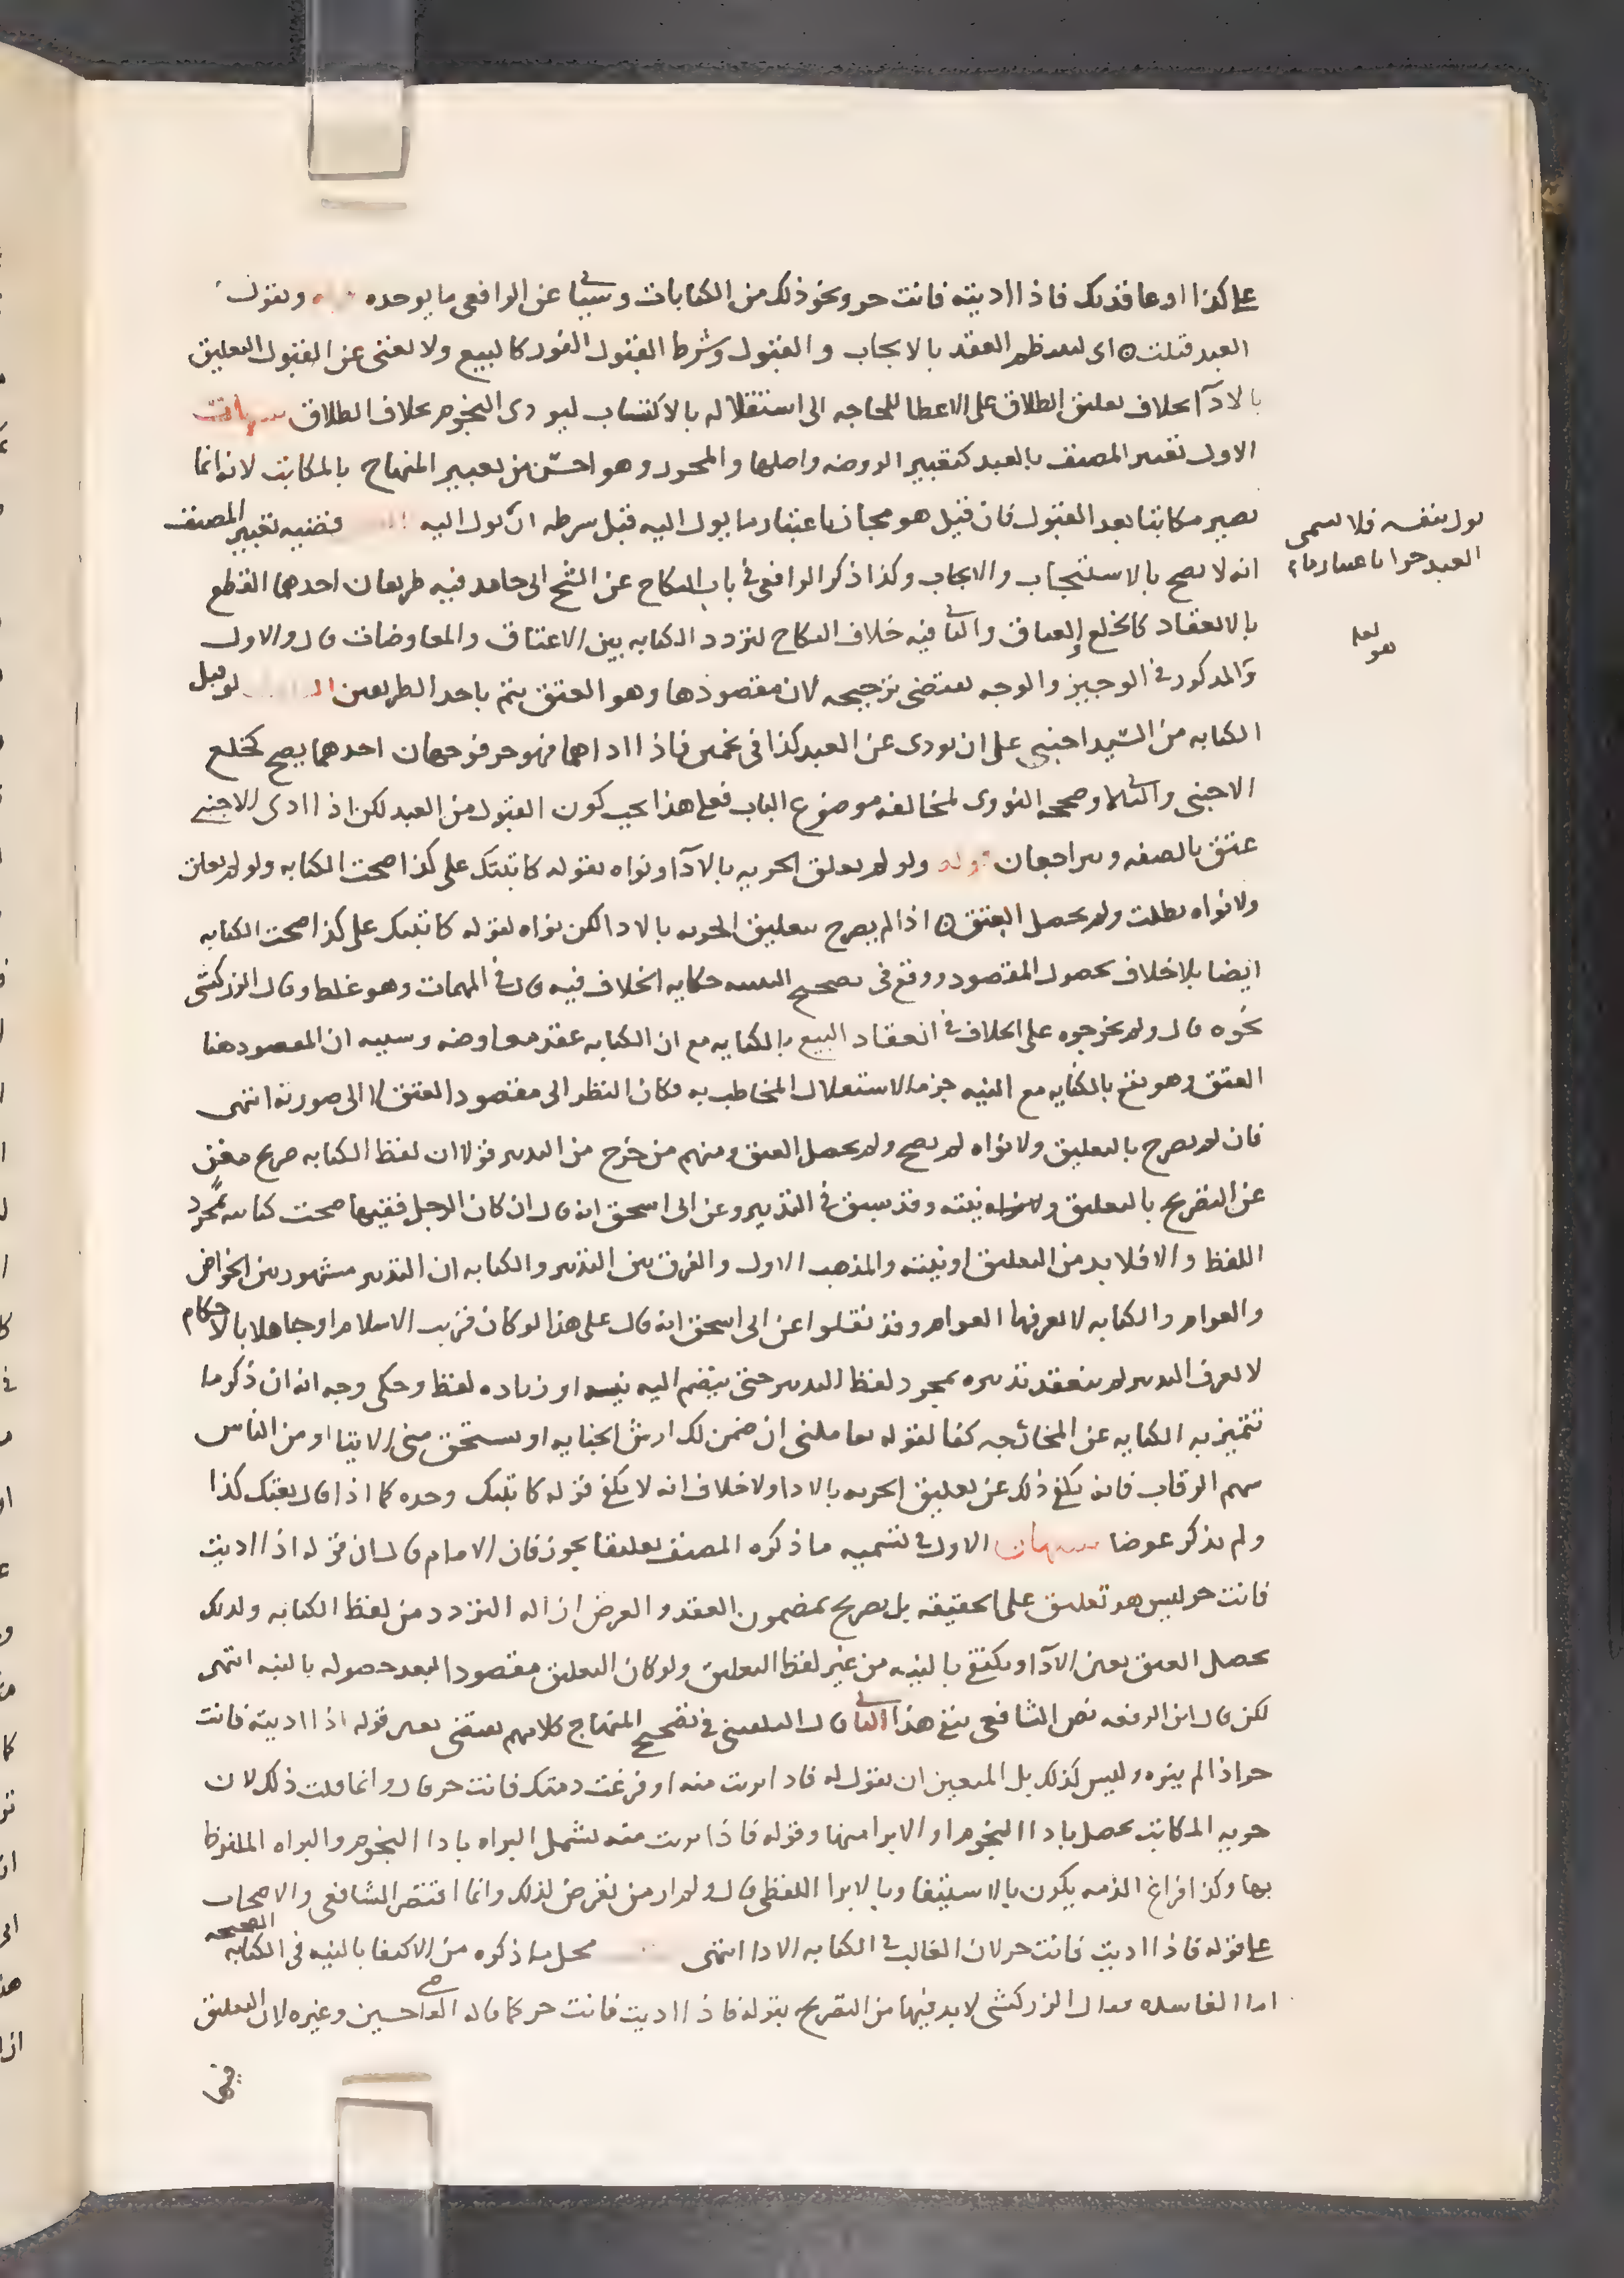 على كذا او عاقدتك فاذا اديته فانت حر ونحو ذلك من الكنايات وسياتي عن الرافعي ما يوخذ ويقول
العبد قبلت ○ اي العقد بالايجاب والقبول وشرط القبول الفور كالبيع ولا يغني عن القبول التعليق
بالادآ بخلاف تعليق الطلاق على الاعطا للحاجه الى استقلاله بالاكتساب ليودي النجوم بخلاف الطلاق تنبيهات
الاول تعبير المصنف بالعبد كتعبير الروضه واصلها والمحرر وهو احسن من تعبير المنهاج بالمكاتب لانه انما
يصير مكاتبا بعد القبول فان قيل هو مجاز باعتبار ما يول اليه قيل شرطه ان يول اليه قضيه تعبير المصنف
يول بنفسه فلا يسمى
العبد حرا باعتبار ما
انه لا يصح بالاستيجاب والايجاب وكذا ذكر الرافعي في باب النكاح عن الشيخ ابي حامد فيه طريقان احدهما القطع
بالانعقاد كالخلع والعتاق والثاني فيه خلاف النكاح لتردد الكتابه بين الاعتاق والمعاوضات قال والاول
والمذكور في الوجيز والوجه يقتضي ترجيحه لان مقصودها وهو العتق يتم باحد الطريقين لو قبل
الكتابه من السيد اجنبي على ان يودي عن العبد كذا في نجمين فاذا اداهما فهو حر فوجهان احدهما يصح كخلع
الاجنبي والثاني لا وصححه النووي لمخالفه موضوع الباب فعلى هذا يجب كون القبول من العبد لكن اذا ادى الاجنبي
عتق بالصفه ويتراجعان قوله ولو لم يعلق الحريه بالادآ ونواه بقوله كاتبتك على كذا صحت الكتابه ولو لم يعلق
ولا نواه بطلت ولم يحصل العتق ○ اذا لم يصرح بتعليق الحريه بالادا لكن نواه بقوله كاتبتك على كذا صحت الكتابه
ايضا بلا خلاف بحصول المقصود ووقع في تصحيح التنبيه حكايه الخلاف فيه قال في المهمات وهو غلط وقال الزركشي
نحوه قال ولم يخرجوه على الخلاف في انعقاد البيع بالكنايه مع ان الكتابه عقد معاوضه وسببه ان المقصود هنا
العتق وهو يقع بالكنايه مع النيه جزما لاستقلال المخاطب به فكان النظر الى مقصود العتق لا الى صورته انتهى
فان لم يصرح بالتعليق ولا نواه لم يصح ولم يحصل العتق ومنهم من خرج من التدبير قولا ان لفظ الكتابه صريح مغن
عن التصريح بالتعليق ونيته وقد سبق في التدبير وعن ابي اسحق انه قال ان كان الرجل فقيها صحت كتابته بمجرد
اللفظ والا فلا بد من التعليق او نيته والمذهب الاول والفرق بين التدبير والكتابه ان التدبير مشهور بين الخواص
والعوام والكتابه لا يعرفها العوام وقد نقلوا عن ابي اسحق انه قال على هذا لو كان قريب الاسلام او جاهلا بالاحكام
لا يعرف التدبير لم ينعقد تدبيره بمجرد لفظ التدبير حتى ينضم اليه نيته او زياده لفظ وحكى وجه انه ان ذكر ما
تتميز به الكتابه عن المخارجه كفا لقوله تعاملني ان ضمن لك ارش الجنايه او يستحق مني الايتا او من الناس
سهم الرقاب فانه يكفي ذلك عن تعليق الحريه بالادا ولا خلاف انه لا يكفي قوله كاتبتك وحده كما اذا قال بعتك كذا
ولم يذكر عوضا تنبيهان الاول في تسميه ما ذكره المصنف تعليقا تجوز فان الامام قال ان قوله اذا اديت
فانت حر ليس هو تعليق على الحقيقه بل تصريح بمضمون العقد والغرض ازاله التردد من لفظ الكتابه ولذلك
يحصل العتق بغير الادآ ويكتفى بالنيه من غير لفظ التعليق ولو كان التعليق مقصودا لبعد حصوله بالنيه انتهى
لكن قال ابن الرفعه نص الشافعي ينفي هذا الثاني قال البلقيني في تصحيح المنهاج كلامهم يقتضي تعين قوله اذا اديته فانت
حر اذا لم ينوه وليس كذلك بل المتعين ان يقول له فاذا برئت منه او فرغت ذمتك فانت حر قال وانما قلت ذلك لان
حريه المكاتب تحصل بادا النجوم او الابرا منها وقوله فاذا برئت منه يشمل البراه بادا النجوم والبراه الملفوظ
بها وكذا فراغ الذمه يكون بالاستيفا وبالابرا اللفظي قال ولم ار من تعرض لذلك وانما اقتصر الشافعي والاصحاب
على قوله فاذا اديت فانت حر لان الغالب في الكتابه الادا انتهى محل ما ذكره من الاكتفا بالنيه في الكتابه الصحيحه
اما الفاسده فقال الزركشي لا بد فيها من التصريح بقوله فاذا اديت فانت حر كما قاله القاضي حسين وغيره لان التعليق
فيها